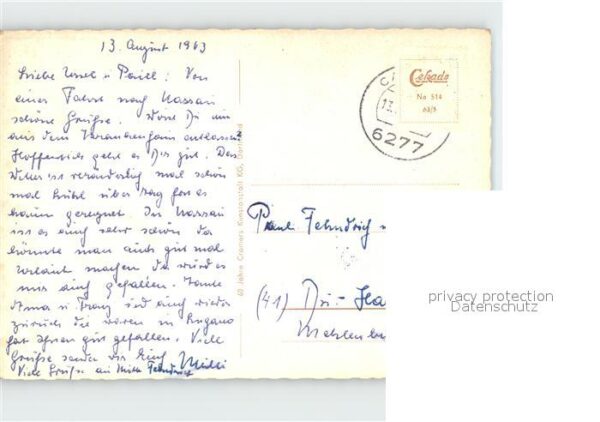 13. August 1963
Liebe Ursel u Paul! Von
einer Fahrt nach Nassau
schöne Grüße. Wurde Di nun
aus dem Krankenhaus entlassen?
Hoffentlich geht es Dir gut. Das
Wetter ist veränderlig mal schön
mal kühl über Tag hat es
kaum geregnet. In Nassau
ist es auch sehr schön da
könnte man auch gut mal
Urlaub machen da würd es
uns auch gefallen. Tante
Anna u Franz sind auch wieder
zurück die waren in Lugano
hat Ihnen gut gefallen. Viele
Grüße senden wir Euch
Viele Grüße an
Celrada
No 514
63/5
13.
6277
60 Jahre Cramers Kunstanstalt KG, Dortmund
Paul Fehndrich
(41) Du.-Ha
privacy protection
Datenschutz